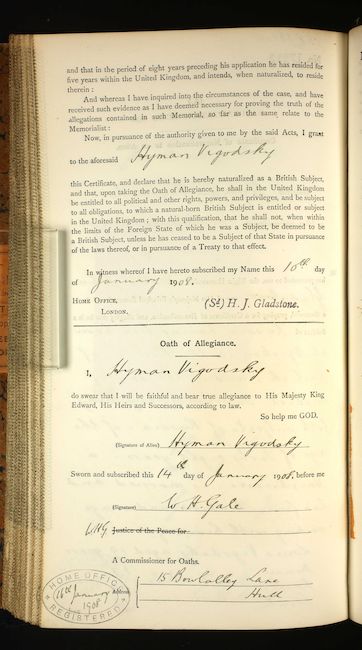 and that in the period of eight years preceding his application he has resided for
five years within the United Kingdom, and intends, when naturalized, to reside
therein :
And whereas I have inquired into the circumstances of the case, and have
received such evidence as I have deemed necessary for proving the truth of the
allegations contained in such Memorial, so far as the same relate to the
Memorialist :
Now, in pursuance of the authority given to me by the said Acts, I grant
to the aforesaid Hyman Vigodsky
this Certificate, and declare that he is hereby naturalized as a British Subject,
and that, upon taking the Oath of Allegiance, he shall in the United Kingdom
be entitled to all political and other rights, powers, and privileges, and be subject
to all obligations, to which a natural-born British Subject is entitled or subject
in the United Kingdom ; with this qualification, that he shall not, when within
the limits of the Foreign State of which he was a Subject, be deemed to be
a British Subject, unless he has ceased to be a Subject of that State in pursuance
of the laws thereof, or in pursuance of a Treaty to that effect.
In witness whereof I have hereto subscribed my Name this 10th day
of January 1908.
HOME OFFICE,
LONDON.
(Sd) H. J. Gladstone.
Oath of Allegiance.
I, Hyman Vigodsky
do swear that I will be faithful and bear true allegiance to His Majesty King
Edward, His Heirs and Successors, according to law.
So help me GOD.
(Signature of Alien) Hyman Vigodsky
Sworn and subscribed this 14th day of January 1908, before me
(Signature) W. H. Gale
WHG Justice of the Peace for
A Commissioner for Oaths.
Address 15 Bowlalley Lane
Hull
HOME OFFICE
16th January
1908
REGISTERED